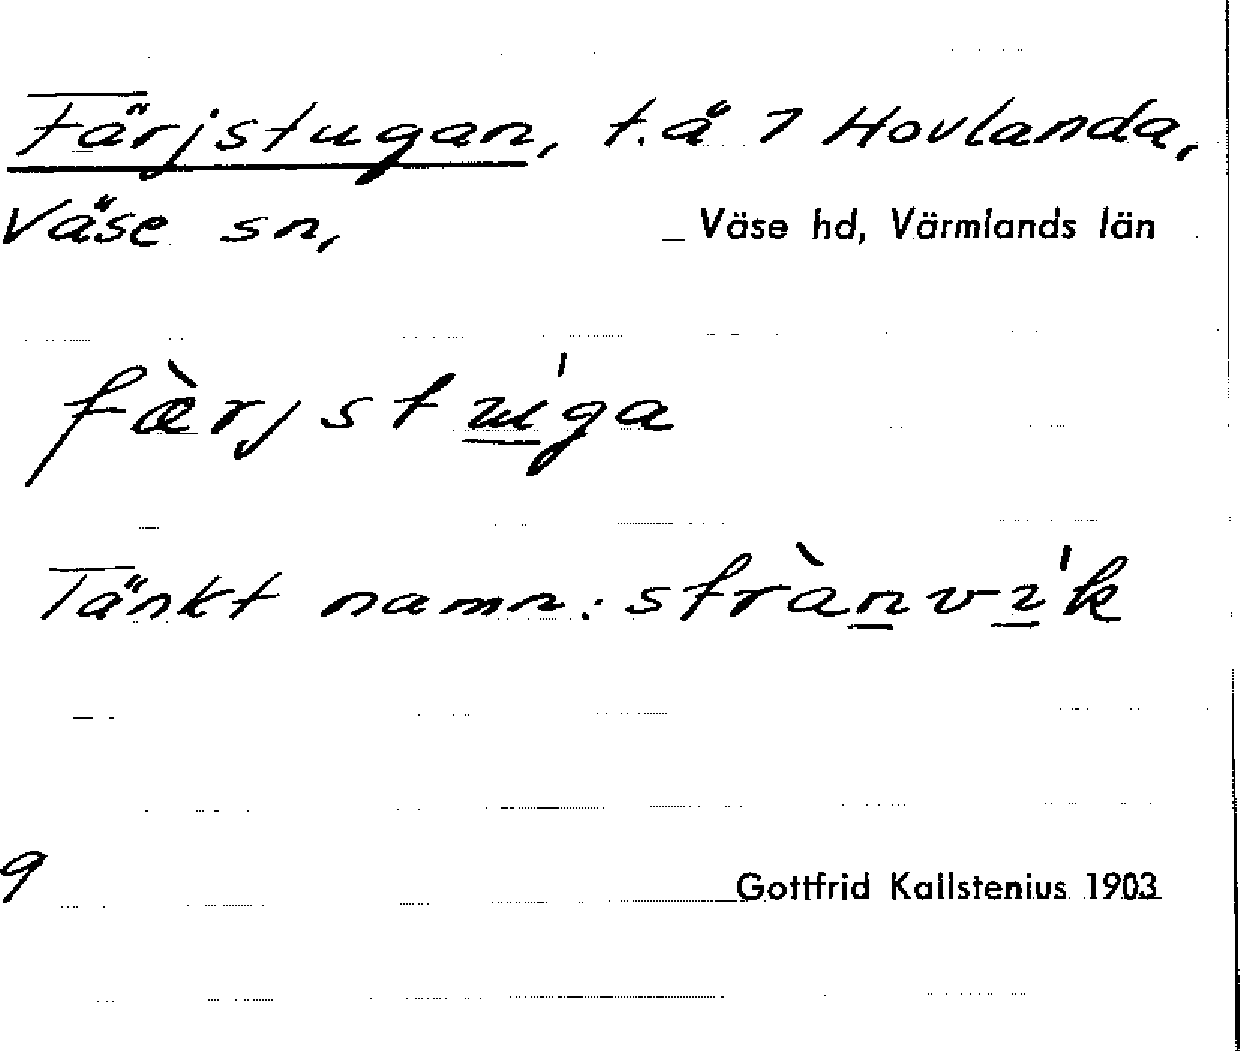 Färjstugan, t.å 7 Hovlanda,
Väse sn, Väse hd, Värmlands län
fæ̀rjstú̲ga
Tänkt namn: stràn̲ví̲k
9
Gottfrid Kallstenius 1903